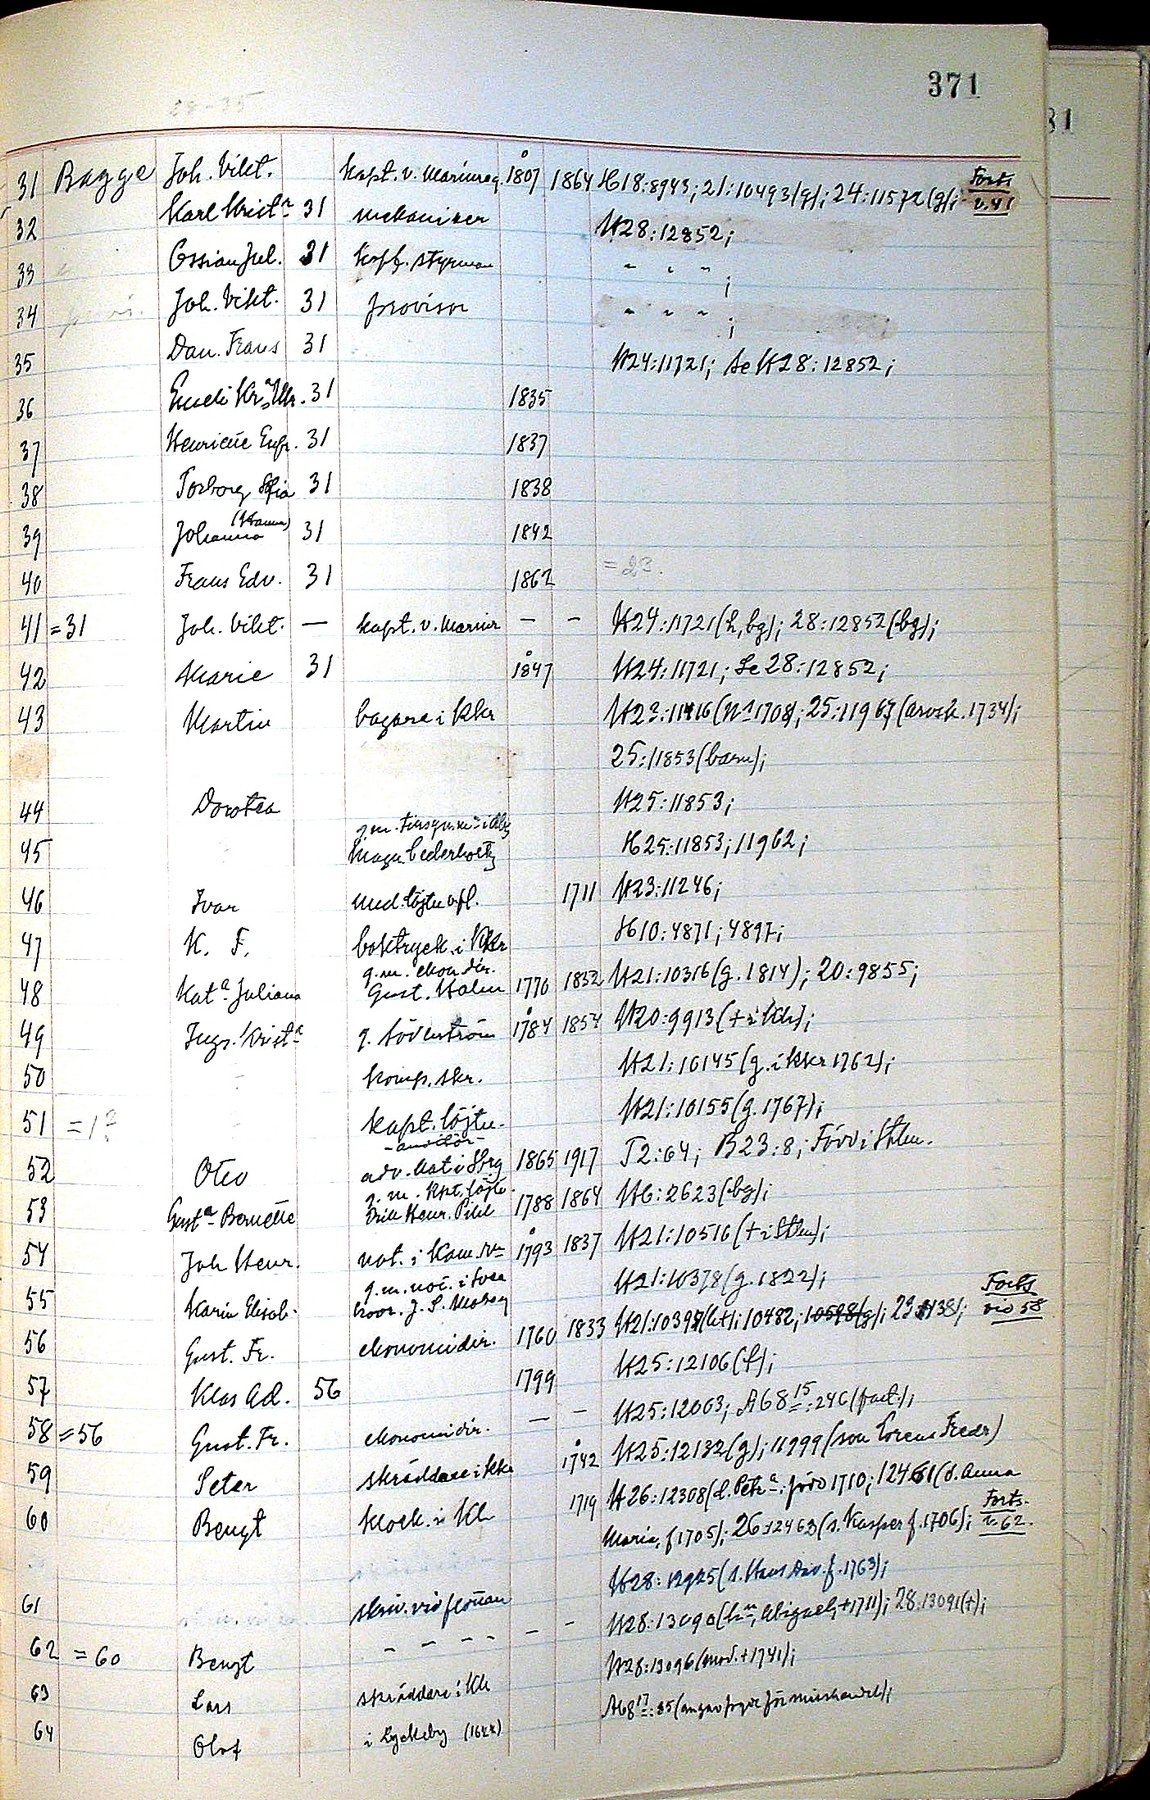 371
28-35
31 Bagge Joh. Vikt. kapt. v. Marinreg. 1807 1864 H18:8943; 21:10493(g); 24:11572(g); Forts v. 41
32 Karl Krist:a 31 mekaniker H28:12852;
33 Ossian Jul. 31 koff. styrman " " " ;
34 Joh. Vikt. 31 provisor " " " ;
35 Dan. Frans 31 H24:11721; se H28:12852;
36 31 1835
37 Henriette Eufr. 31 1837
38 Torborg Sofia 31 1838
39 Johanna (Hanna) 31 1842
40 Frans Edv. 31 1862 = 23.
41 =31 Joh. Vikt. — kapt. v. Marinr — — H24:11721(h, bg); 28:12852(bg);
42 Marie 31 1847 H24:11721; Se 28:12852;
43 Martin bagare i Kkr H23:11416(n:1708); 25:11967(arvsk. 1734);
25:11853(barn);
44 Dorotea H25:11853;
45 g.m. Magn. Cederholtz H25:11853; 11962;
46 Ivar und. löjtn v. fl. 1711 H23:11246;
47 K. F. boktryck. i Kkr H10:4871; 4897;
48 Kat:a Juliana g.m. ekon dir. Gust. Holm 1770 1832 H21:10316(g. 1814); 20:9855;
49 Inga Krist:a g. Söderström 1784 1854 H20:9913(+ i Kh);
50 komp. skr. H21:10145(g. i Kkr 1762);
51 =1? kapt. löjtn. H21:10155(g. 1767);
52 Otto auditör adv. kat i Gbg 1865 1917 T2:64; B23:8; Förv i Sthlm.
53 Gust:a Bernette g. m. kpt. löjtn. Erik Henr. Pihl 1788 1864 H6:2623(bg);
54 Joh Henr. not. i Kam. r:n 1793 1837 H21:10516(+ i Sthm);
55 Karin Elisab. g.m. not. i Svea hovr. J. S. Moberg H21:10378(g. 1822);
56 Gust. Fr. ekonomidir. 1760 1833 H21:10397(bt); 10482; 10598(g); Forts vid 58
57 Klas Ad. 56 1799 H25:12106(f);
58 =56 Gust. Fr. ekonomidir. — — H25:12063; A68 15:246(fact.);
59 Peter skräddare i Kkr 1742 H25:12132(g); 11999(son Lorens Fredr)
60 Bengt klock. i Kh 1719 H26:12308(d. Petr:a, förv 1710; 12461(d. Anna
Maria, f 1705); 26:12463(s. Kasper f. 1706); Forts. v. 62.
H28:12925(s. Hans Dav. f. 1763);
61 skriv. vid flottan
62 =60 Bengt — — — — — — H28:13090(h:u, Abigael, +1711); 28:13091(+);
63 Lars skräddare i Kh H28:13096(mod. +1741);
64 Olof i Lyckeby (1624) A68 17:35